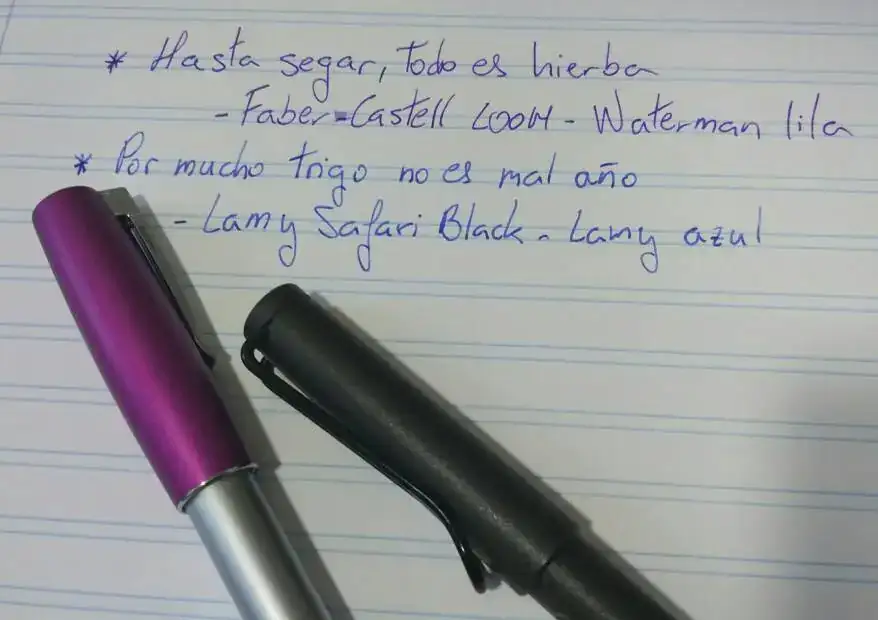 * Hasta segar, todo es hierba
- Faber-Castell LOOM - Waterman lila
* Por mucho trigo no es mal año
- Lamy Safari Black - Lamy azul